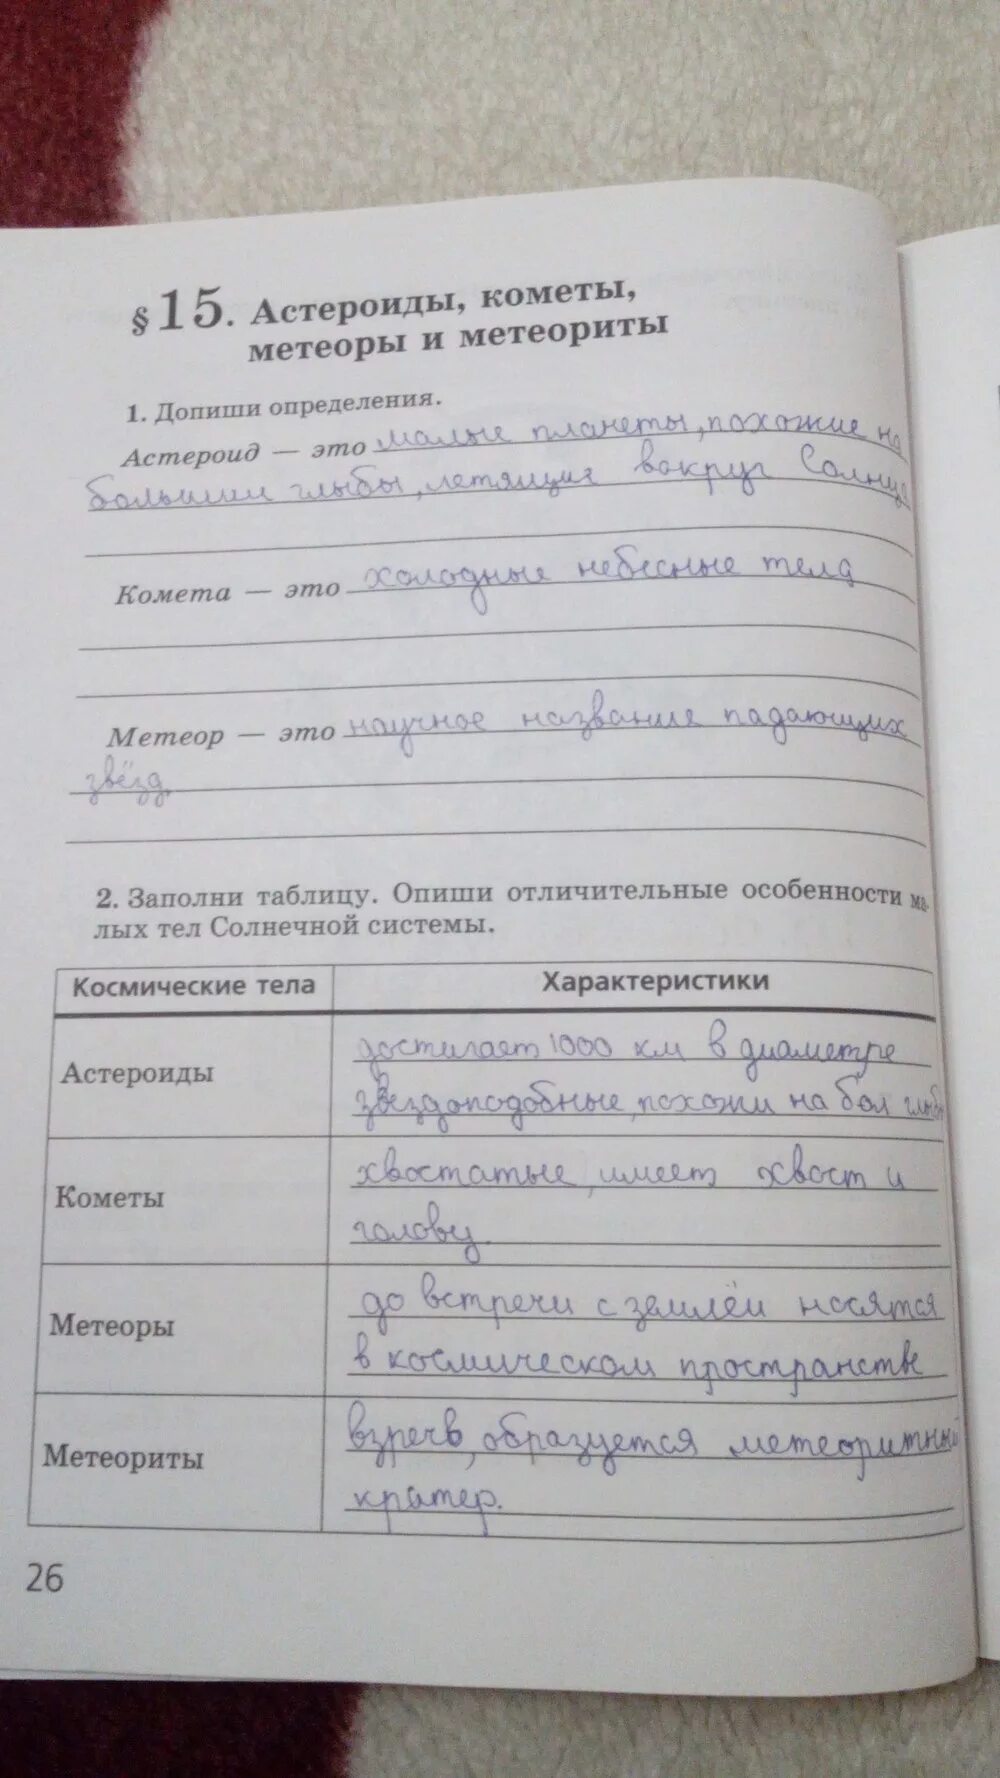 § 15. Астероиды, кометы,
метеоры и метеориты
1. Допиши определения.
Астероид — это малые планеты, похожие на
большии глыбы, летящие вокруг Солнца
Комета — это холодные небесные тела
Метеор — это научное название падающих
звёзд.
2. Заполни таблицу. Опиши отличительные особенности ма-
лых тел Солнечной системы.
Космические тела Характеристики
Астероиды
достигает 1000 км в диаметре
звездоподобные, похожи на бол глыбы
Кометы
хвостатые, имеет хвост и
голову.
Метеоры
до встречи с землёй носятся
в космическом пространстве
Метеориты
взречв, образуется метеоритный
кратер.
26